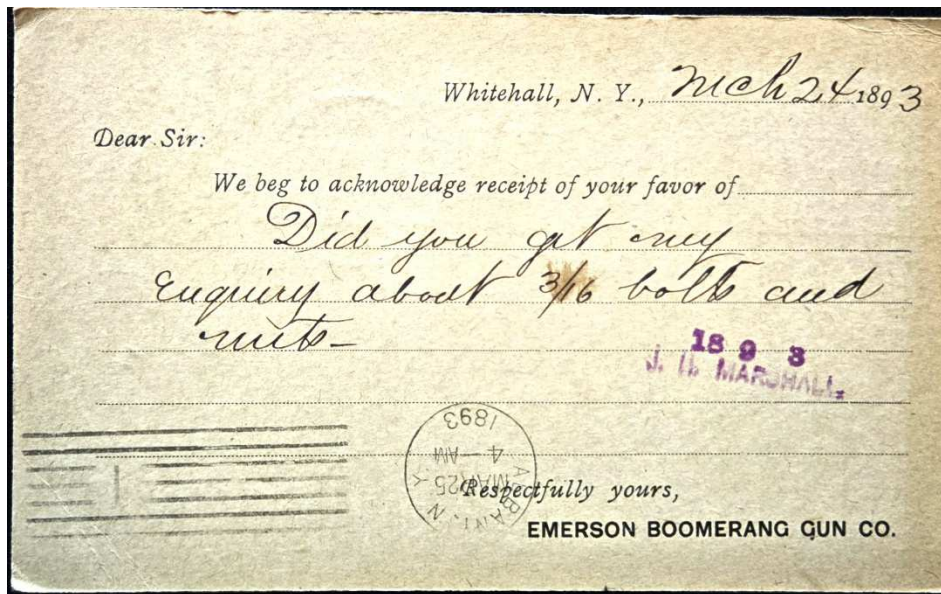 Whitehall, N. Y., Mch 24 1893
Dear Sir:
We beg to acknowledge receipt of your favor of
Did you get my
Enquiry about 3/16 bolts and
nuts-
18 9 3
J. H. MARSHALL.
1893
4 — AM
MAR 25
ALBANY. N. Y.
1
Respectfully yours,
EMERSON BOOMERANG GUN CO.